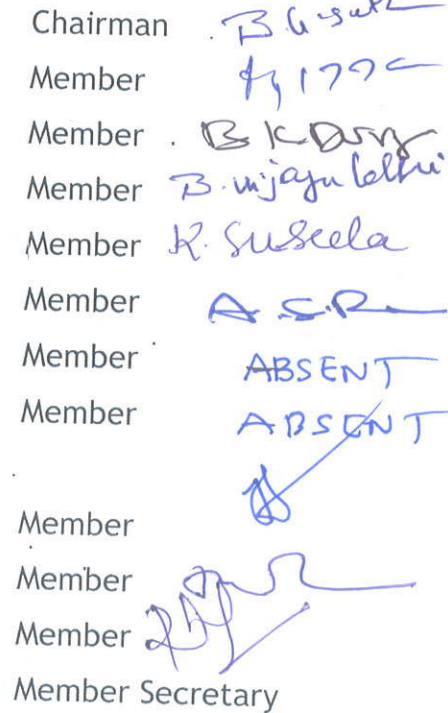 Chairman
Member
Member B K
Member B.
Member K. Suseela
Member A.S.R
Member ABSENT
Member ABSENT
Member
Member
Member
Member Secretary